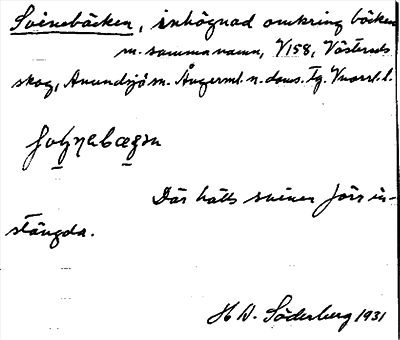 Svinebäcken, inhägnad omkring bäcken
m. samma namn, V158, Västersels
skog, Anundsjö sn. Ångerml. n. doms. Tg. l.

Där hölls sviner förr in-
stängda.
H W. Söderberg 1931